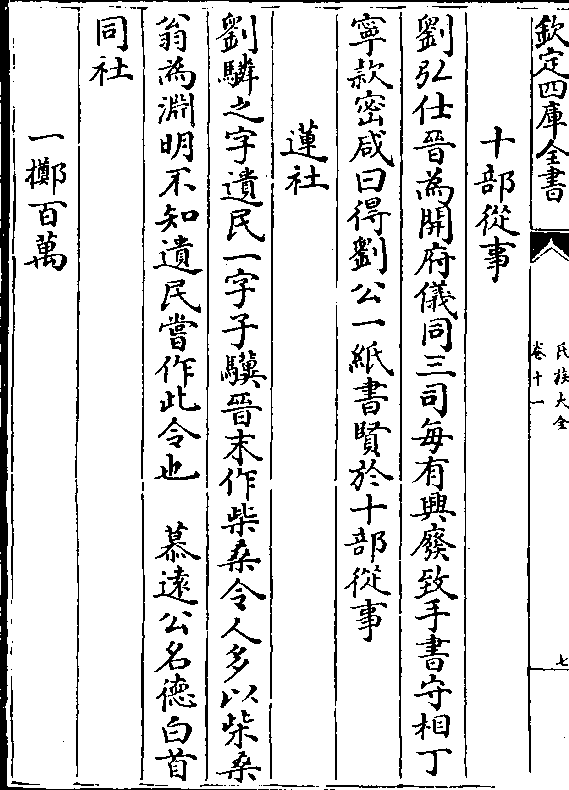 欽定四庫全書
氏族大全
卷十一
七
十部從事
劉弘仕晉為開府儀同三司每有興廢致手書守相丁
寧款密咸曰得劉公一紙書賢於十部從事
蓮社
劉驎之字遺民一字子驥晉末作柴桑令人多以柴桑
翁為淵明不知遺民嘗作此令也 慕遠公名德白首
同社
一擲百萬